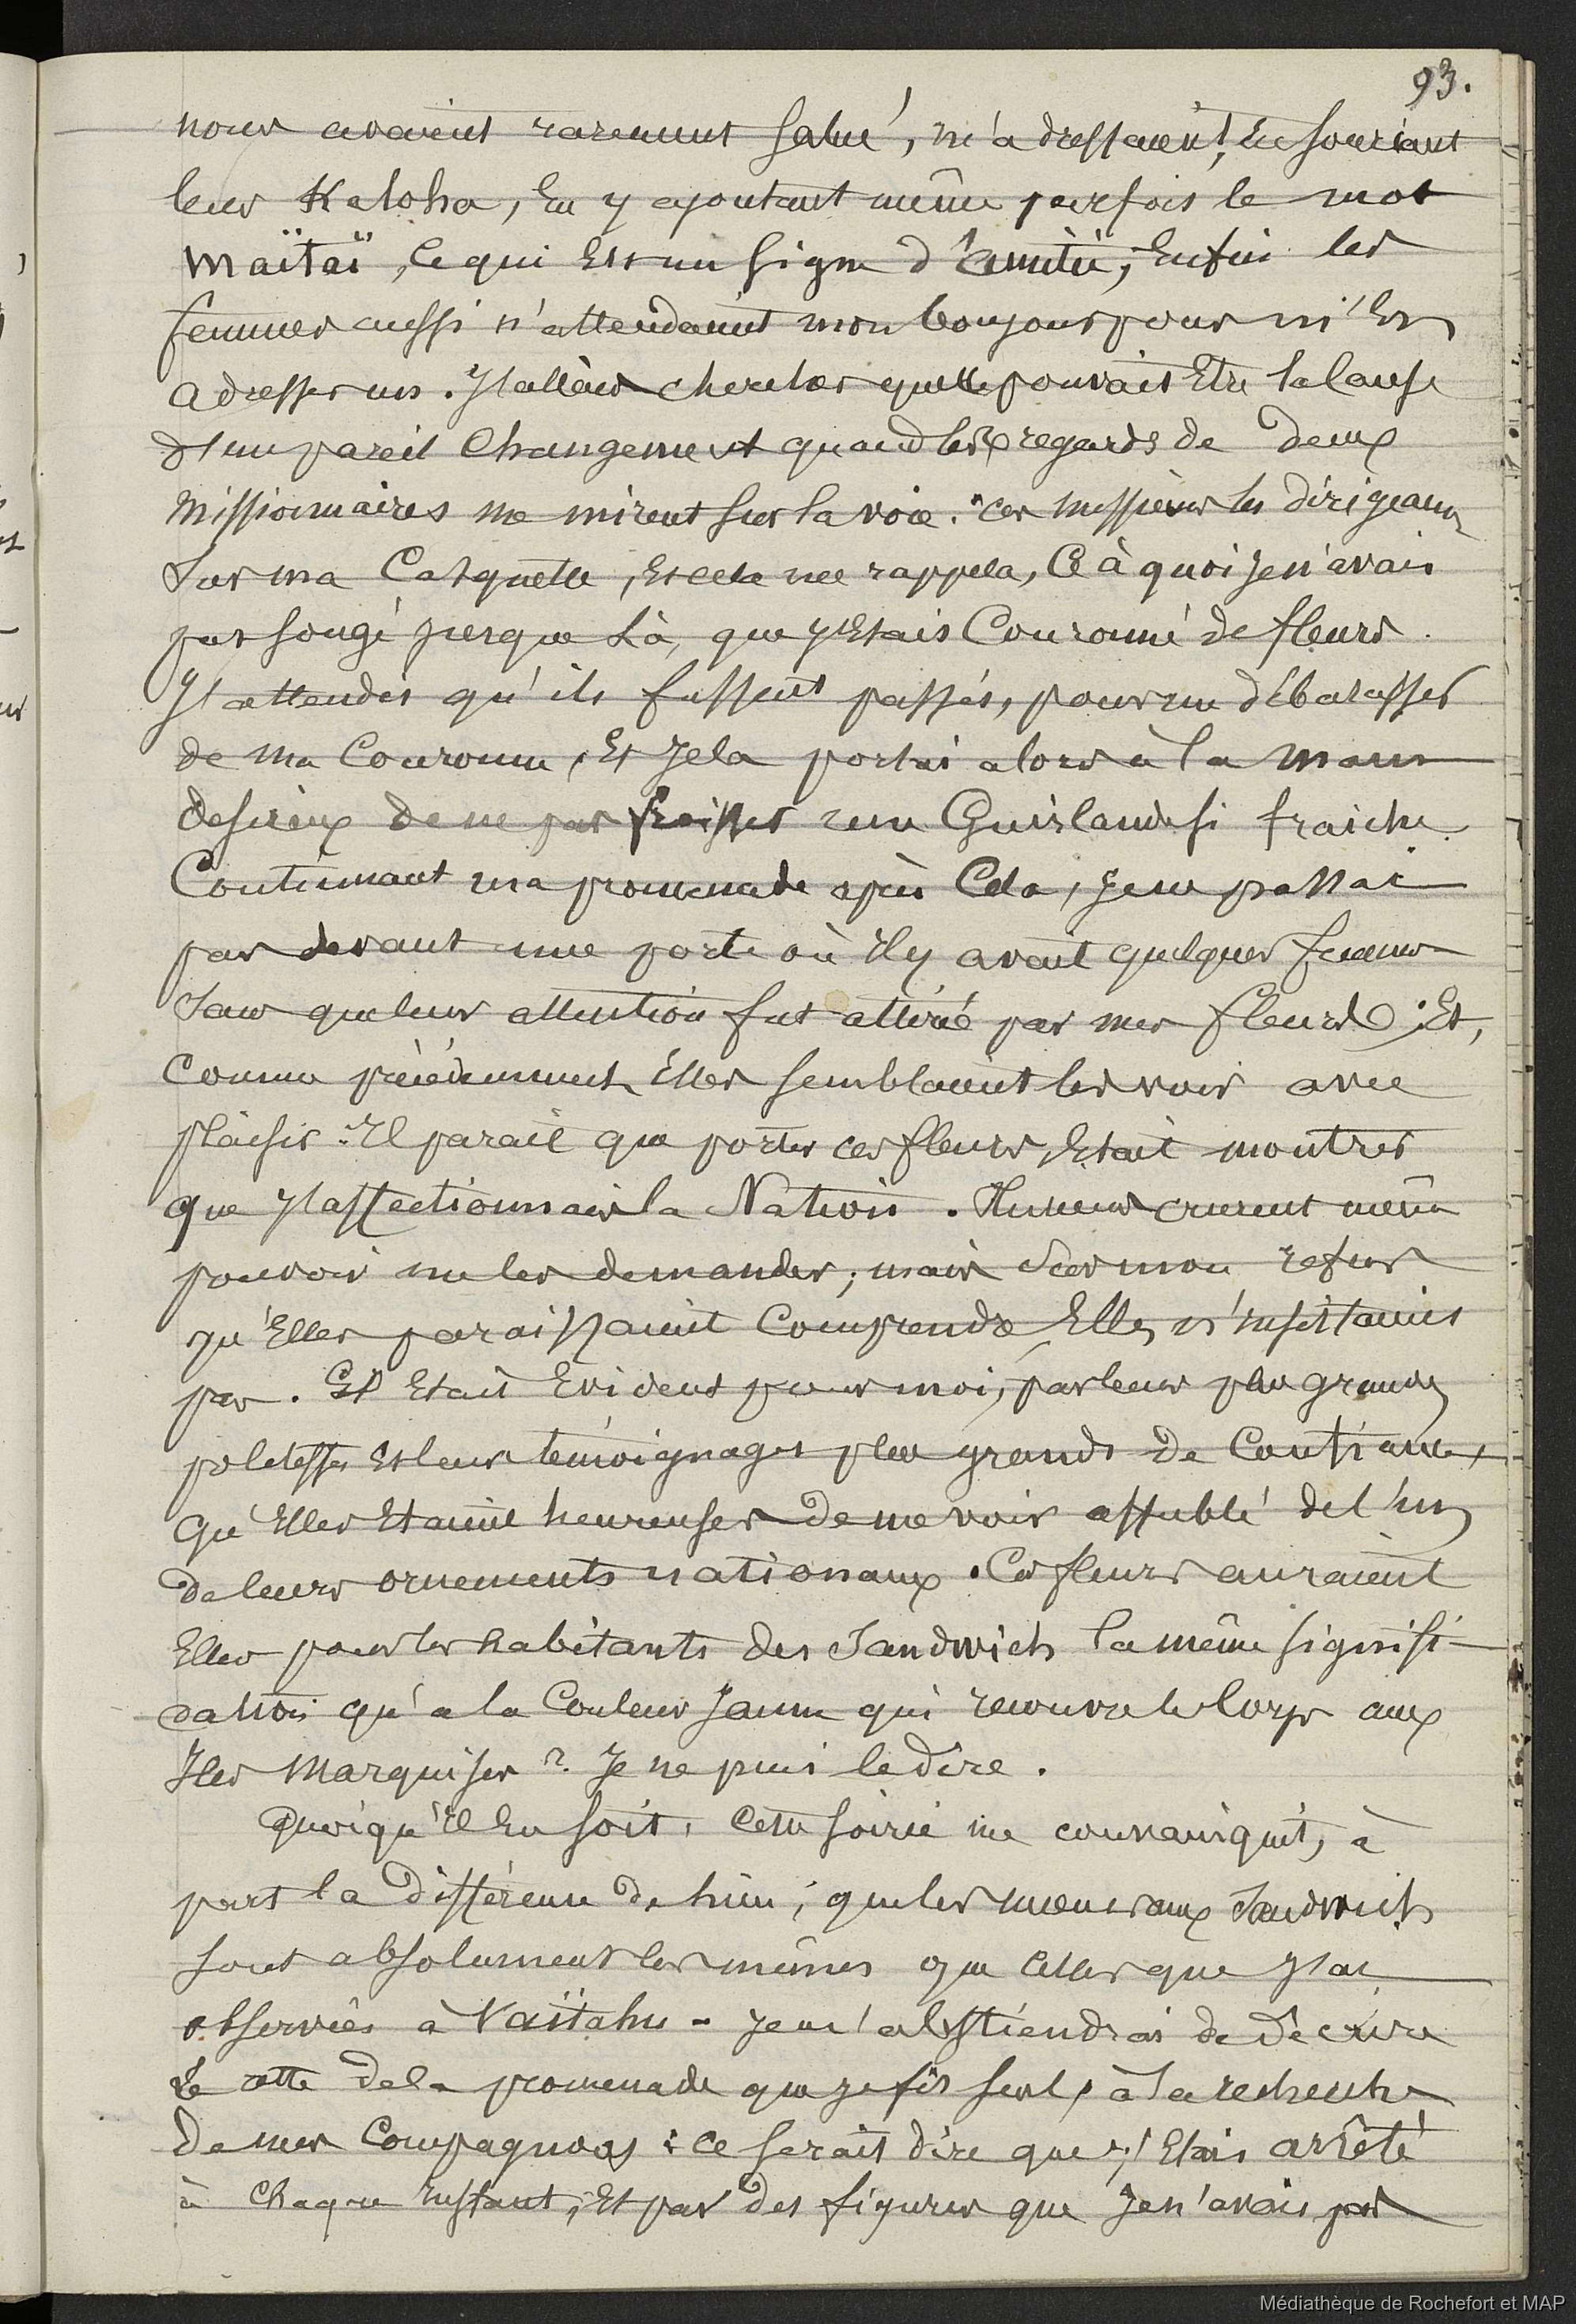 93.
nous avaient rarement salué, m'adressaient, en souriant
leur Kaloha, en y ajoutant même parfois le mot
maïtaï, ce qui est un signe d'amitié; Enfin les
femmes aussi n'attendaient mon bonjour pour m'en
adresser un. J'allais chercher quelle pouvait être la cause
d'un pareil changement quand les regards de deux
missionnaires me mirent sur la voie. ces messieurs les dirigeaient
sur ma casquette, et cela me rappela, ce à quoi je n'avais
pas songé jusque là, que j'étais couronné de fleurs.
J'attendis qu'ils fussent passés, pour me débarasser
de ma couronne, et je la portai alors à la main
désireux de ne pas froisser une guirlande si fraiche.
Continuant ma promenade après cela, je ne passai
pas devant une porte où il y avait quelques femmes
sans que leur attention fut attiré par mes fleurs; et,
comme précédemment elles semblaient les voir avec
plaisir. Il parait que porter ces fleurs, était montrer
que j'affectionnais la Nation. Plusieurs crurent même
pouvoir me les demander; mais sur mon refus
qu'elles paraissaient comprendre elles n'insistaient
pas. Il était évident pour moi, par leur plus grande
politesse et leurs témoignages plus grands de confiance,
qu'elles étaient heureuses de me voir affublé de l'un
de leurs ornements nationaux. Ces fleurs auraient
elles pour les habitants des Sandwich la même signifi-
cation qu'a la couleur jaune qui recouvre le corps aux
Iles Marquises? Je ne puis le dire.
Quoiqu'il en soit, cette soirée me convainquit, à
part la différence de lieu, que les mœurs aux Sandwich
sont absolument les mêmes que celles que j'ai
observées à Vaïtahu - je m'abstiendrai de décrire
le reste de la promenade que je fis seul, à la recherche
de mes compagnons: ce serait dire que j'étais arrêté
à chaque instant, et par des figures que je n'avais pas
Médiathèque de Rochefort et MAP